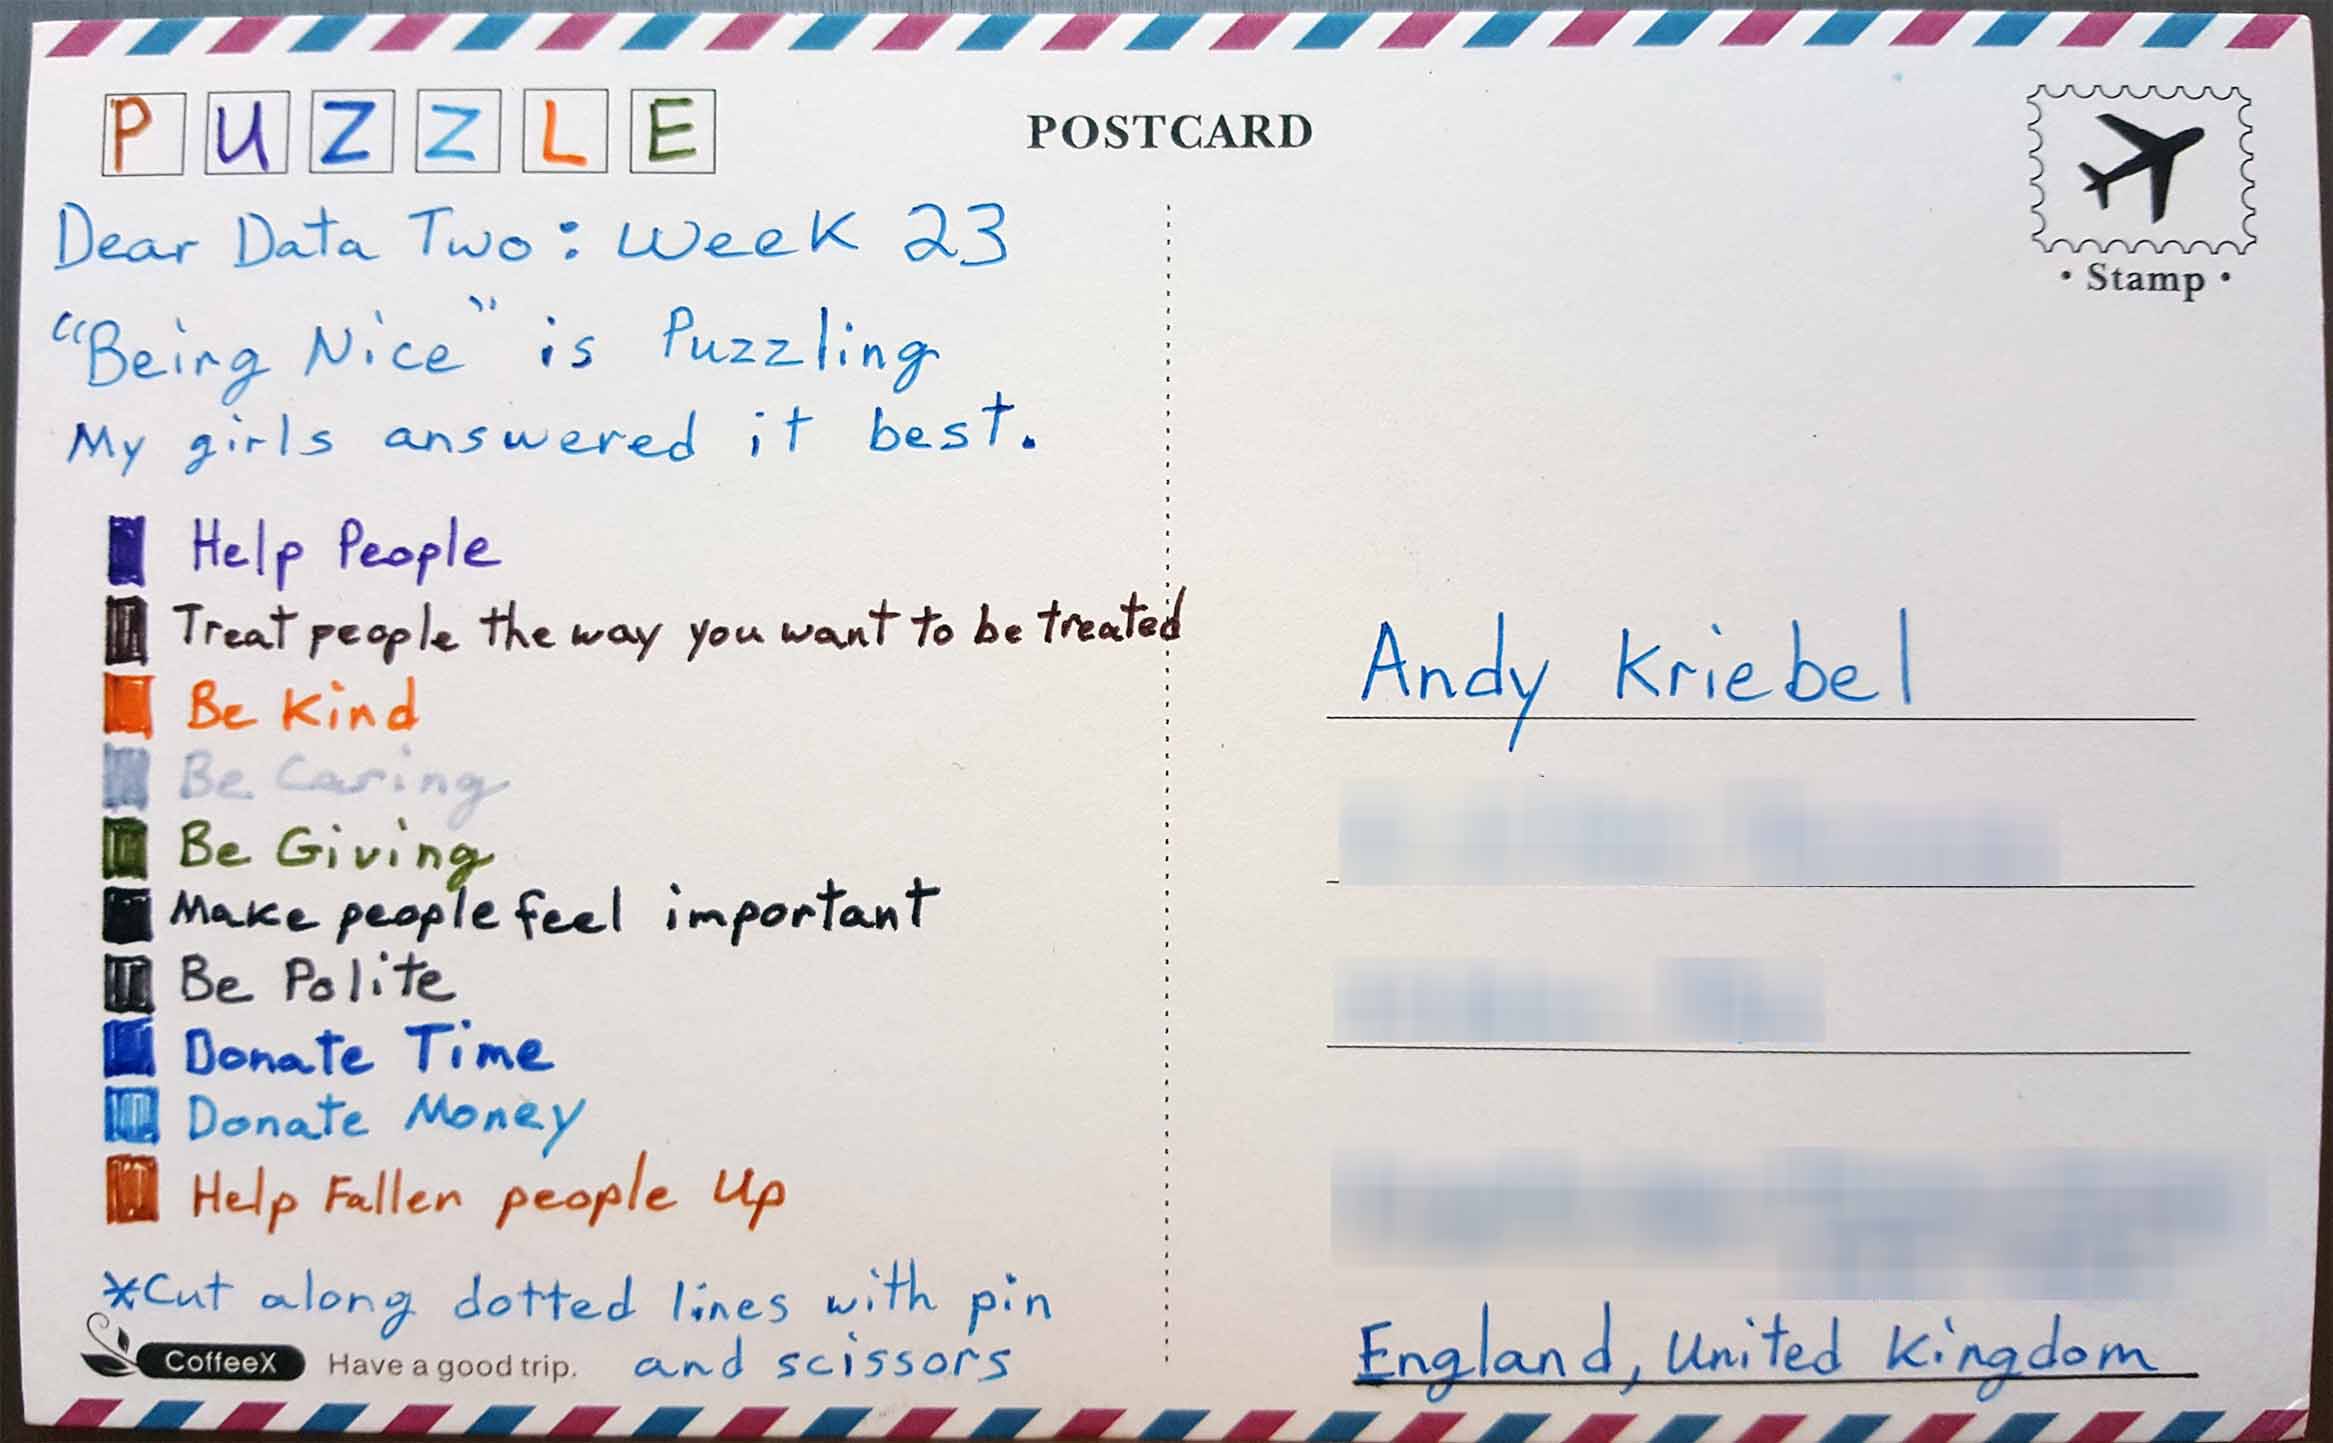 PUZZLE
POSTCARD
• Stamp •
Dear Data Two: Week 23
"Being Nice" is Puzzling
My girls answered it best.
Help People
Treat people the way you want to be treated
Be Kind
Be Caring
Be Giving
Make people feel important
Be Polite
Donate Time
Donate Money
Help Fallen people Up
*Cut along dotted lines with pin
and scissors
CoffeeX Have a good trip.
Andy Kriebel
England, United Kingdom